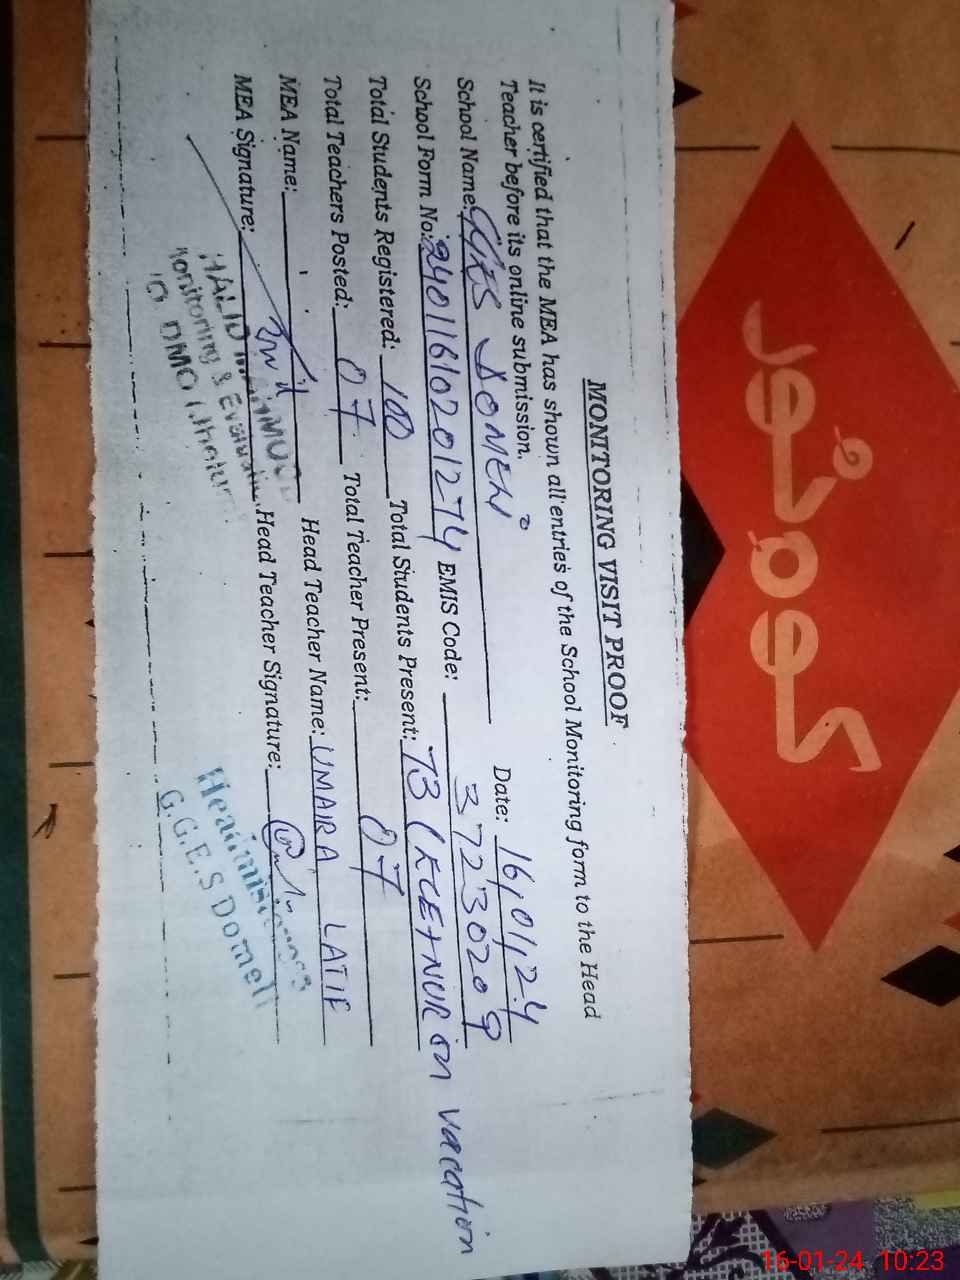 MONITORING VISIT PROOF
It is certified that the MEA has shown all entries of the School Monitoring form to the Head
Teacher before its online submission.
School Name: GGES DOMELI Date: 16/01/24
School Form No: 2401161020 1274 EMIS Code: 37230209
Total Students Registered: 100 Total Students Present: 73 (ECE+NUR on vacation
Total Teachers Posted: 07 Total Teacher Present: 07
MEA Name: Head Teacher Name: UMAIRA LATIF
MEA Signature: Head Teacher Signature:
Monitoring & Evaluation
DMO Jhelum
Headmistress
G.G.E.S Domeli
16-01-24 10:23